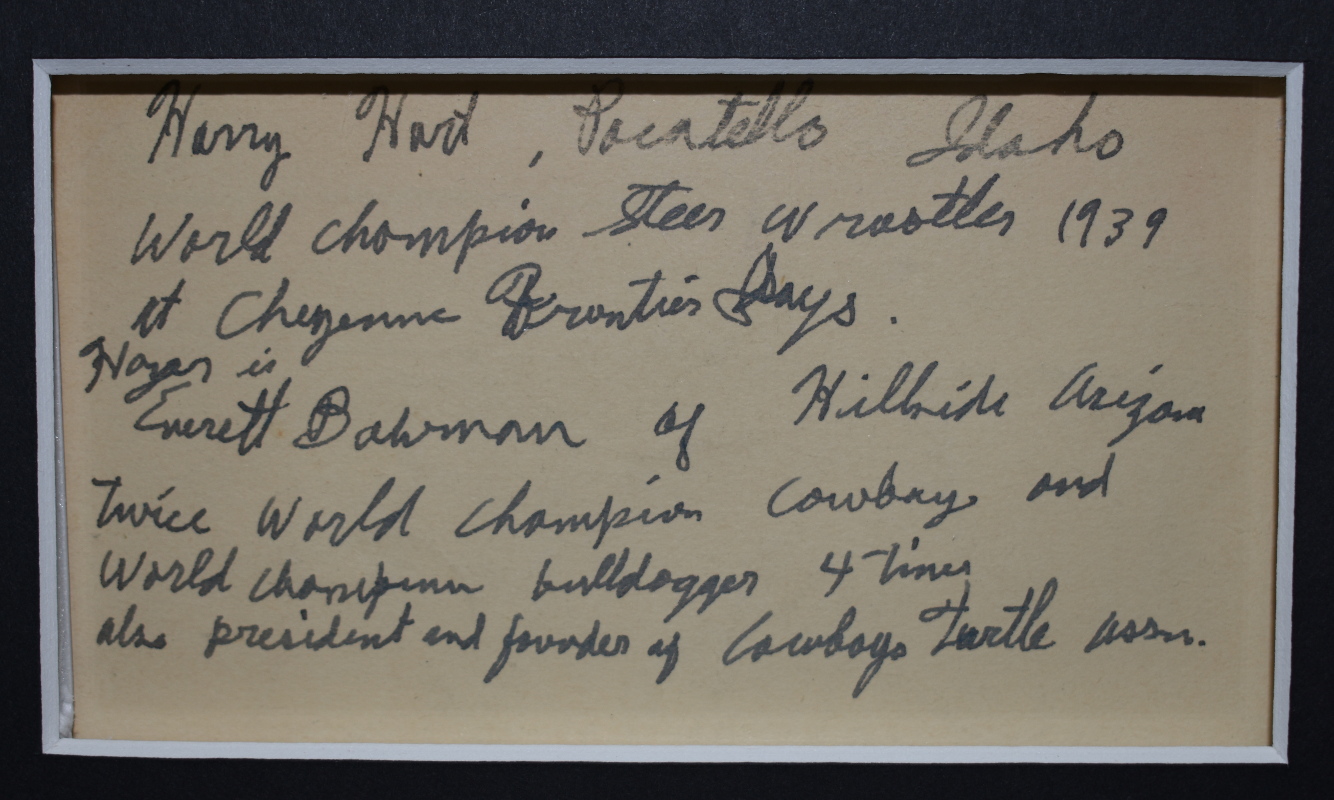 Harry Hart, Pocatello Idaho
World champion Steer wrastler 1939
at Cheyenne Frontier Days.
Hazer is
Everett Bowman of Hillside Arizona
twice World Champion Cowboy and
World champion bulldogger 4 times
also president and founder of Cowboys Turtle assn.